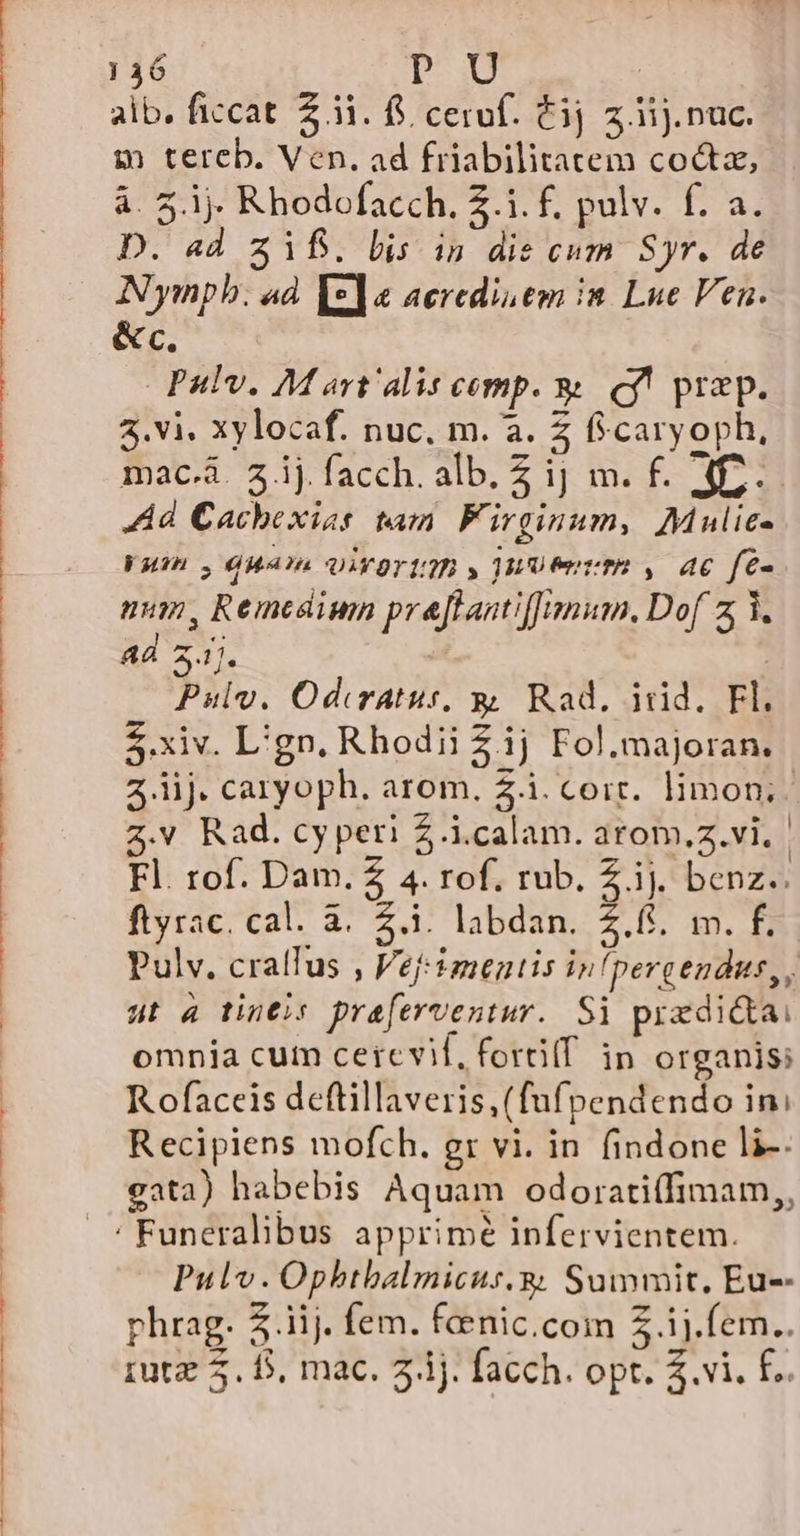 136 P U
alb. ſiccat ℥.ii. ß. ceruſ. ♁ij ʒ.iij. nuc.
m tereb. Ven. ad friabilitatem coctæ,
ā. ʒ.ij. Rhodoſacch. ℥.i. f. pulv. ſ. a.
D. ad ʒiß. bis in die cum Syr. de
Nymph. ad a acredinem in Lue Ven.
&c.
Pulv. Martialis comp. ℞ ♂ præp.
ʒ.vi. xylocaſ. nuc. m. ā. ℥ ß caryoph,
mac. ā. ʒ.ij. ſacch. alb. ℥ ij m. f.
Ad Cachexias tam Virginum, Mulie-
rum, quam virorum, juvenum, ac ſe-
num, Remedium præſtantiſſimum. Doſ ʒ i.
ad ʒ.ij.
Pulv. Odoratus. ℞ Rad. irid. Fl.
℥.xiv. Lign. Rhodii ℥ ij Fol. majoran.
ʒ.iij. caryoph. arom. ℥.i. cort. limon.
ʒ.v Rad. cyperi ℥.i. calam. arom. ʒ.vi.
Fl. roſ. Dam. ℥ 4. roſ. rub. ℥.ij. benz.
ſtyrac. cal. ā. ℥.i. labdan. ℥.ß. m. f.
Pulv. craſſus, Veſtimentis inſpergendus,
ut à tineis præſerventur. Si prædicta
omnia cum cerevisſ, fortiſſ in organis
Roſaceis deſtillaveris, (ſuſpendendo in
Recipiens moſch. gr vi. in ſindone li-
gata) habebis Aquam odoratiſſimam,
Funeralibus apprimè inſervientem.
Pulv. Ophthalmicus. ℞ Summit. Eu-
phrag. ℥.iij. ſem. fœnic. com ℥.ij. ſem.
rutæ ℥. ß, mac. ʒ.ij. ſacch. opt. ℥.vi. f.